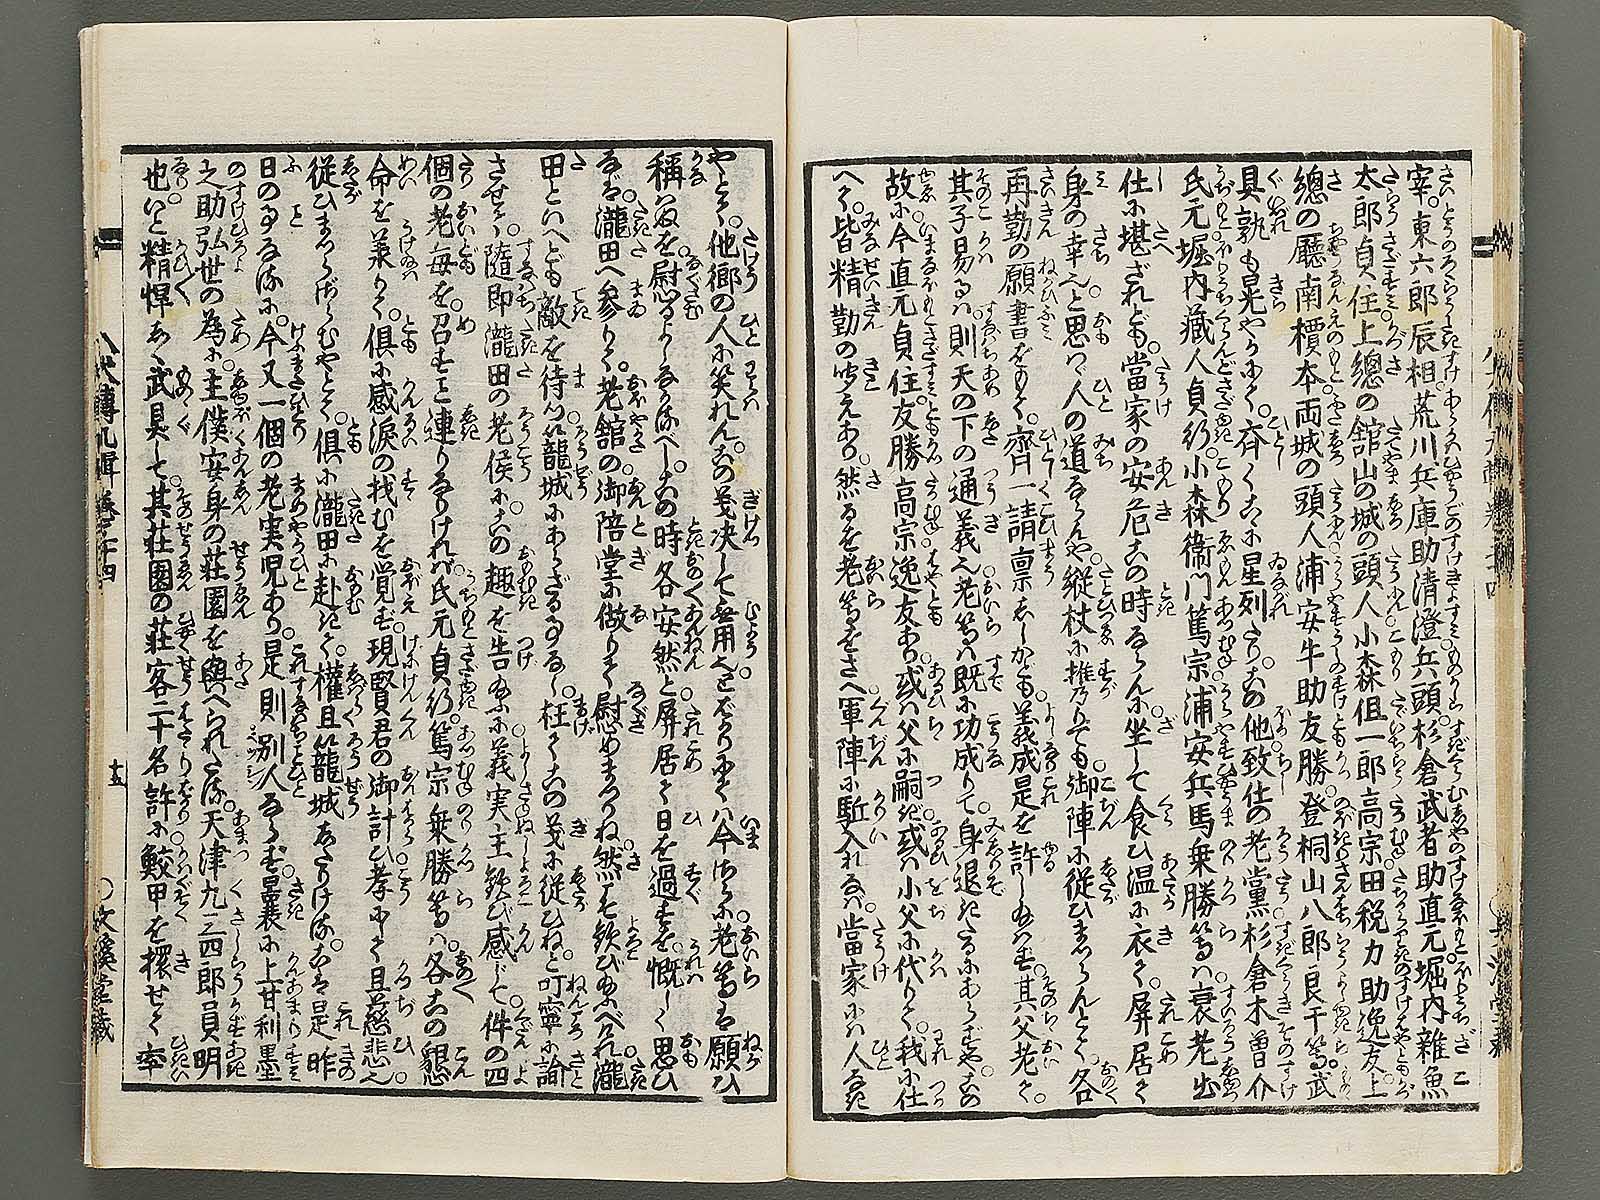 宰。東六郎辰相。荒川兵庫助清澄。兵頭。杉倉武者助直元。堀内雜魚
太郎貞住。上總の舘山の城の頭人小森但一郎高宗。田税力助逸友。上
總の廳南。榎本。両城の頭人浦安牛助友勝。登桐山八郎良于等。武
具孰も晃やかにて。齊くこゝに星列たり。この他致仕の老黨。杉倉木曽介
氏元。堀内藏人貞行。小森衛門篤宗。浦安兵馬乗勝等は。衰老出
仕に堪ざれども。當家の安危この時ならんに。坐して食ひ温に衣て。屏居て
身の幸へと思はゞ。人の道ならんや。縦杖に携乃りても。御陣に従ひまゐらんとて。各
再勤の願書をもて。齊一請禀ししかども。義成是を許し給はず。其父老て。
其子易るは。則天の下の通義也。老等は既に功成りて。身退きたるにあらずや。この
故に今直元。貞住。友勝。高宗。逸友あり。或は父に嗣ぎ。或は小父に代りて。我に仕
へて。皆精勤の聞えあり。然るを老等をさへ軍陣に駈入れなば。當家には人なき
やとて。他郷の人に笑れん。この義决して無用也。とばかりにては。今さらに老等は願ひ
稱はぬを。慰るよしなかるべし。この時各安然と。屏居て日を過すを慨しく思ひ
なば。瀧田へ参りて。老舘の御陪堂に做りて。慰めまつりね。然らば欽び給ふべけれ。瀧
田といへども敵を待。籠城にあらざることなし。枉てこの義に従ひね。と叮寧に諭
させて。隨即瀧田の老侯に。この趣を告給ふに。義実主欽び感じて。件の四
個の老毎を。召すこと連りなりければ。氏元。貞行。篤宗。乗勝等は。各この懇
命を兼りて。倶に感涙の找むを覚ず。現賢君の御計ひ。孝にて且慈悲也。
従ひまつらざらむやとて。倶に瀧田に赴きて。權且籠城したりける。こは是昨
日のことなるに。今又一個の老実児あり。是則別人ならず。曩に上甘利墨
之助弘世の為に。主僕安身の荘園を與へられたる。天津九三四郎員明
也。いと精悍しき武具して。其荘園の荘客二十名許に。鮫甲を擐せて。率
八犬傳九輯 巻三十四
十五
○文溪堂藏